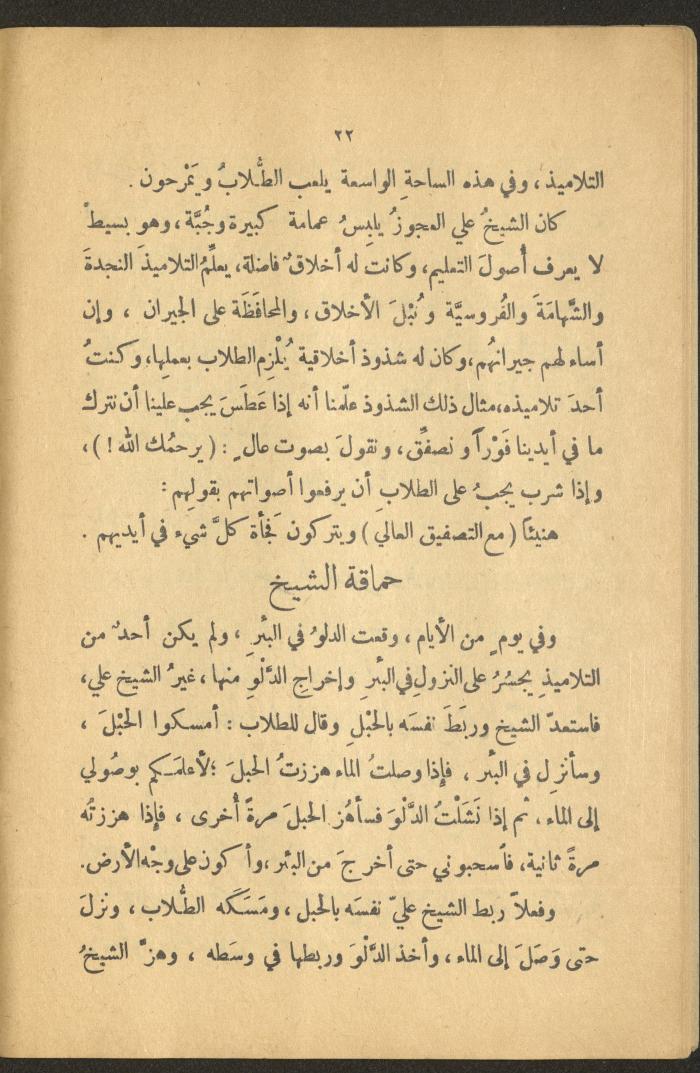 ٢٢
التلاميذ ، وفي هذه الساحةِ الواسعة يلعب الطُّلابُ ويَمْرحون .
كان الشيخُ علي العجوزُ يلبِسُ عمامة كبيرة وجُبَّة ، وهو بسيطٌ
لا يعرف أُصولَ التعليم ، وكانت له أخلاقٌ فاضلة ، يعلِّمُ التلاميذَ النجدةَ
والشَّهامَةَ والفُروسيَّة ونُبْلَ الأخلاق ، والمحافَظَة على الجيران ، وإن
أساء لهم جيرانُهُم ، وكان له شذوذ أخلاقية يُلْزِم الطلاب بعملِها ، وكنتُ
أحدَ تلاميذه ، مثال ذلك الشذوذ علّمنا أنه إذا عَطَسَ يجب علينا أن نترك
ما في أيدينا فَوْراً ونصفِّق ، ونقولَ بصوت عالٍ : ( يرحمُك الله ! ) ،
وإذا شرب يجبُ على الطلابِ أن يرفعوا أصواتهم بقولِهم :
هنيئاً ( مع التصفيق العالي ) ويتركون فَجأة كلَّ شيء في أيديهم .
حماقة الشيخ
وفي يومٍ من الأيام ، وقعت الدلوُ في البئرِ ، ولم يكن أحدٌ من
التلاميذِ يجسُرُ على النزولِ في البئرِ وإخراجِ الدَّلْوِ منها ، غيرُ الشيخ علي ،
فاستعدّ الشيخ وربَطَ نفسَه بالحَبْلِ وقال للطلاب : أمسكوا الحَبْلَ ،
وسأنزِل في البئر ، فإذا وصلتُ الماء هززتُ الحبلَ ؛ لأعلمَـكم بوصُولي
إلى الماء ، ثم إذا نَشَلْتُ الدَّلْوَ فسأهُز الحبلَ مرةً أُخرى ، فإذا هززتُه
مرةً ثانية ، فاسحبوني حتى أخرجَ من البئر ، وأكون على وجْه الأرض .
وفعلاً ربط الشيخ عليّ نفسَه بالحبل ، ومَسَكَه الطُّلاب ، ونزلَ
حتى وَصَلَ إلى الماء ، وأخذ الدَّلْوَ وربطها في وسَطه ، وهزَّ الشيخُ